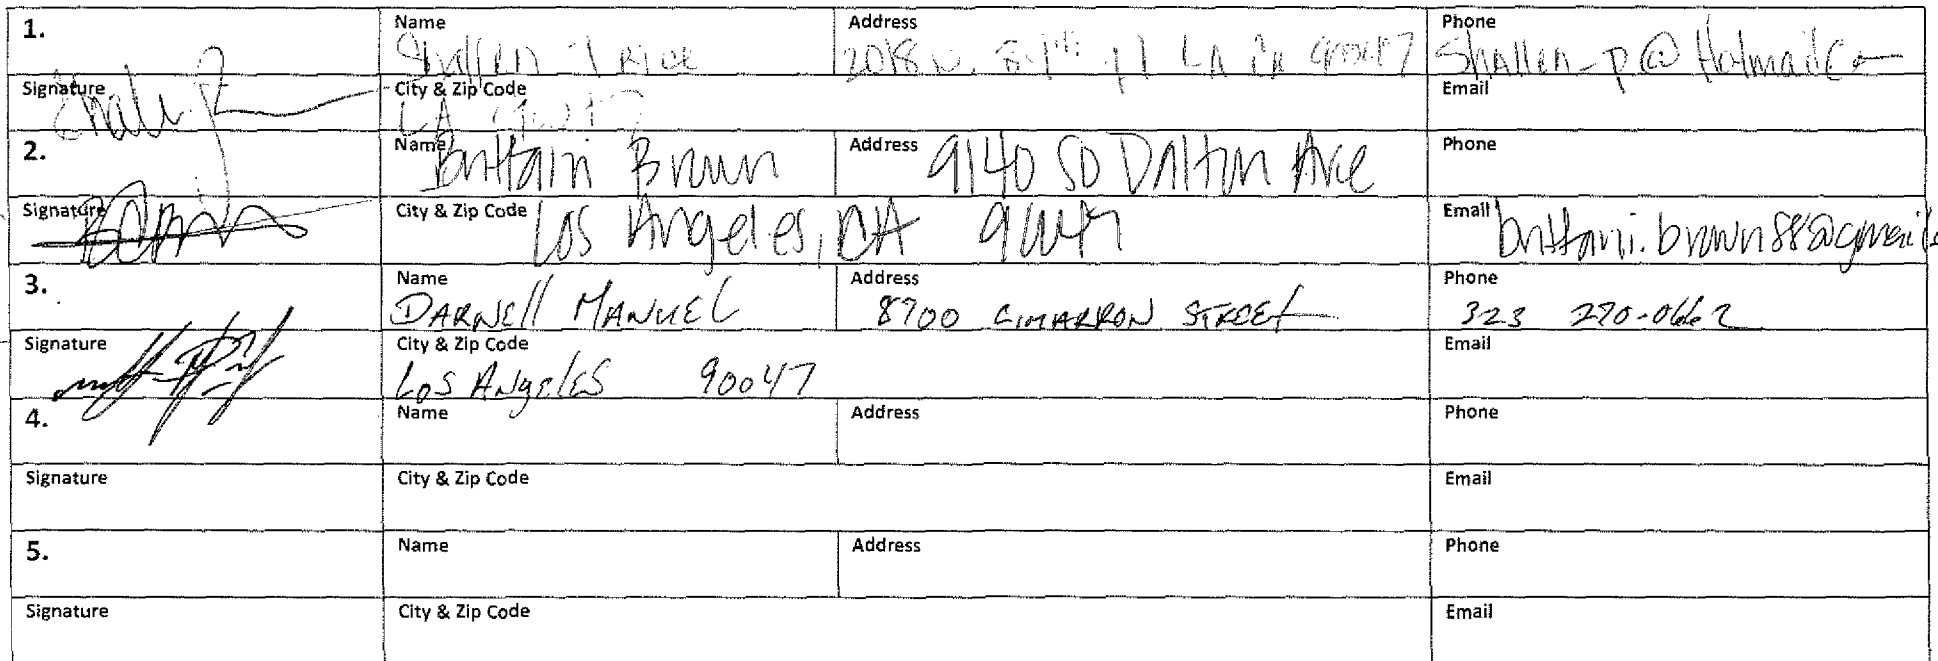 1. Name Address Phone
Shallen Price 2018 W. LA Ca 90047 Shallen_p@Hotmail.Co
Signature City & Zip Code Email
LA 90047
2. Name Brittani Brown Address 9140 SO Dalton Ave Phone
Signature City & Zip Code Los Angeles, CA 90047 Email brittani.brown88@gmail.c
3. Name Address Phone
DARNEll MANUEL 8700 CIMARRON STREET 323 270-0662
Signature City & Zip Code Email
Los Angeles 90047
4. Name Address Phone
Signature City & Zip Code Email
5. Name Address Phone
Signature City & Zip Code Email